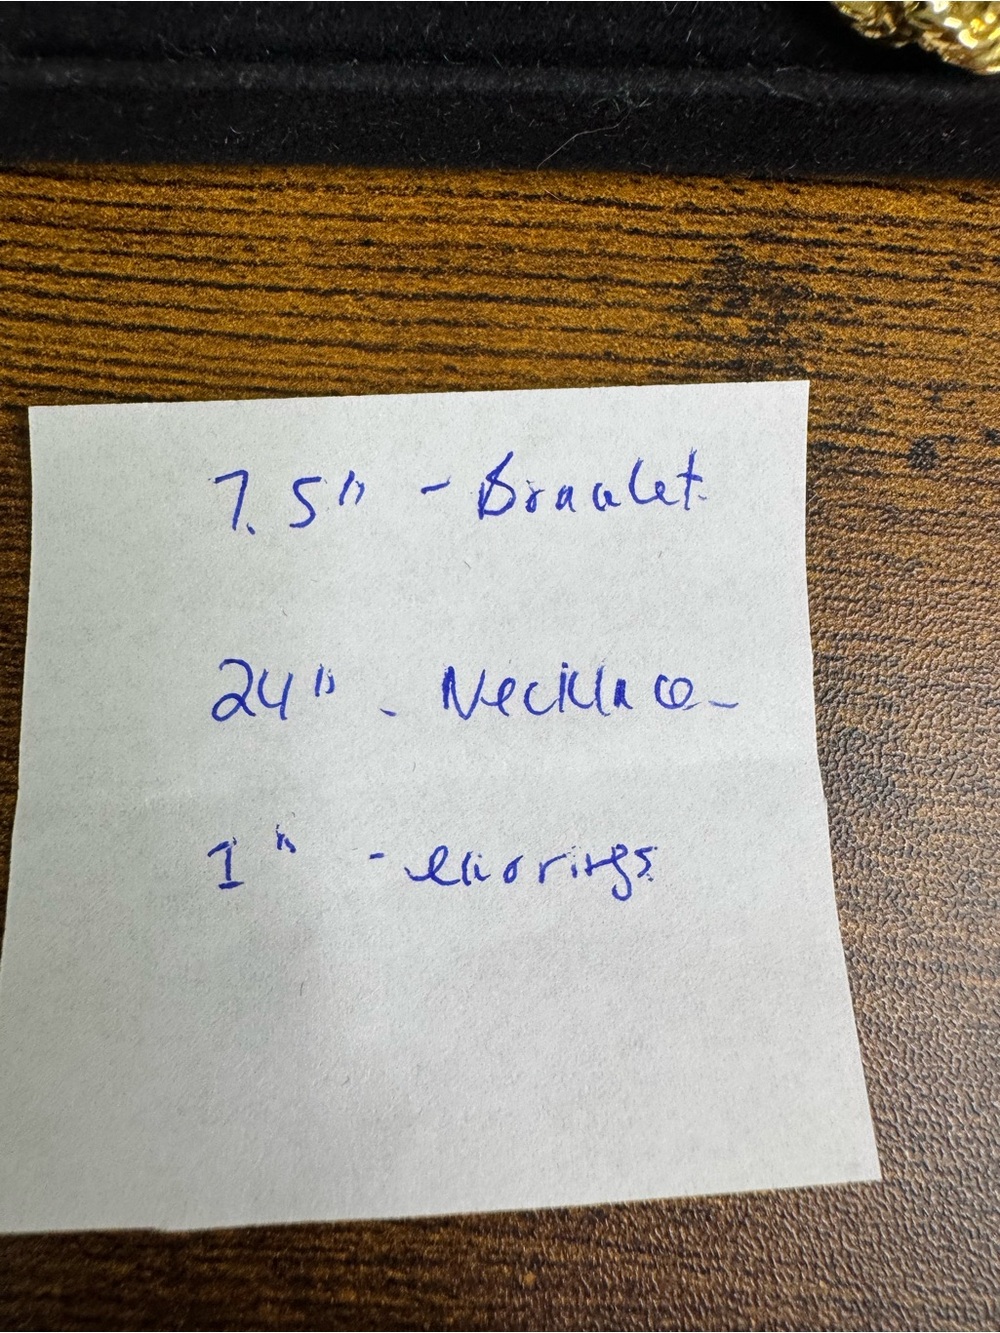 7.5" - Bracelet
24" - Necklace
1" - earrings